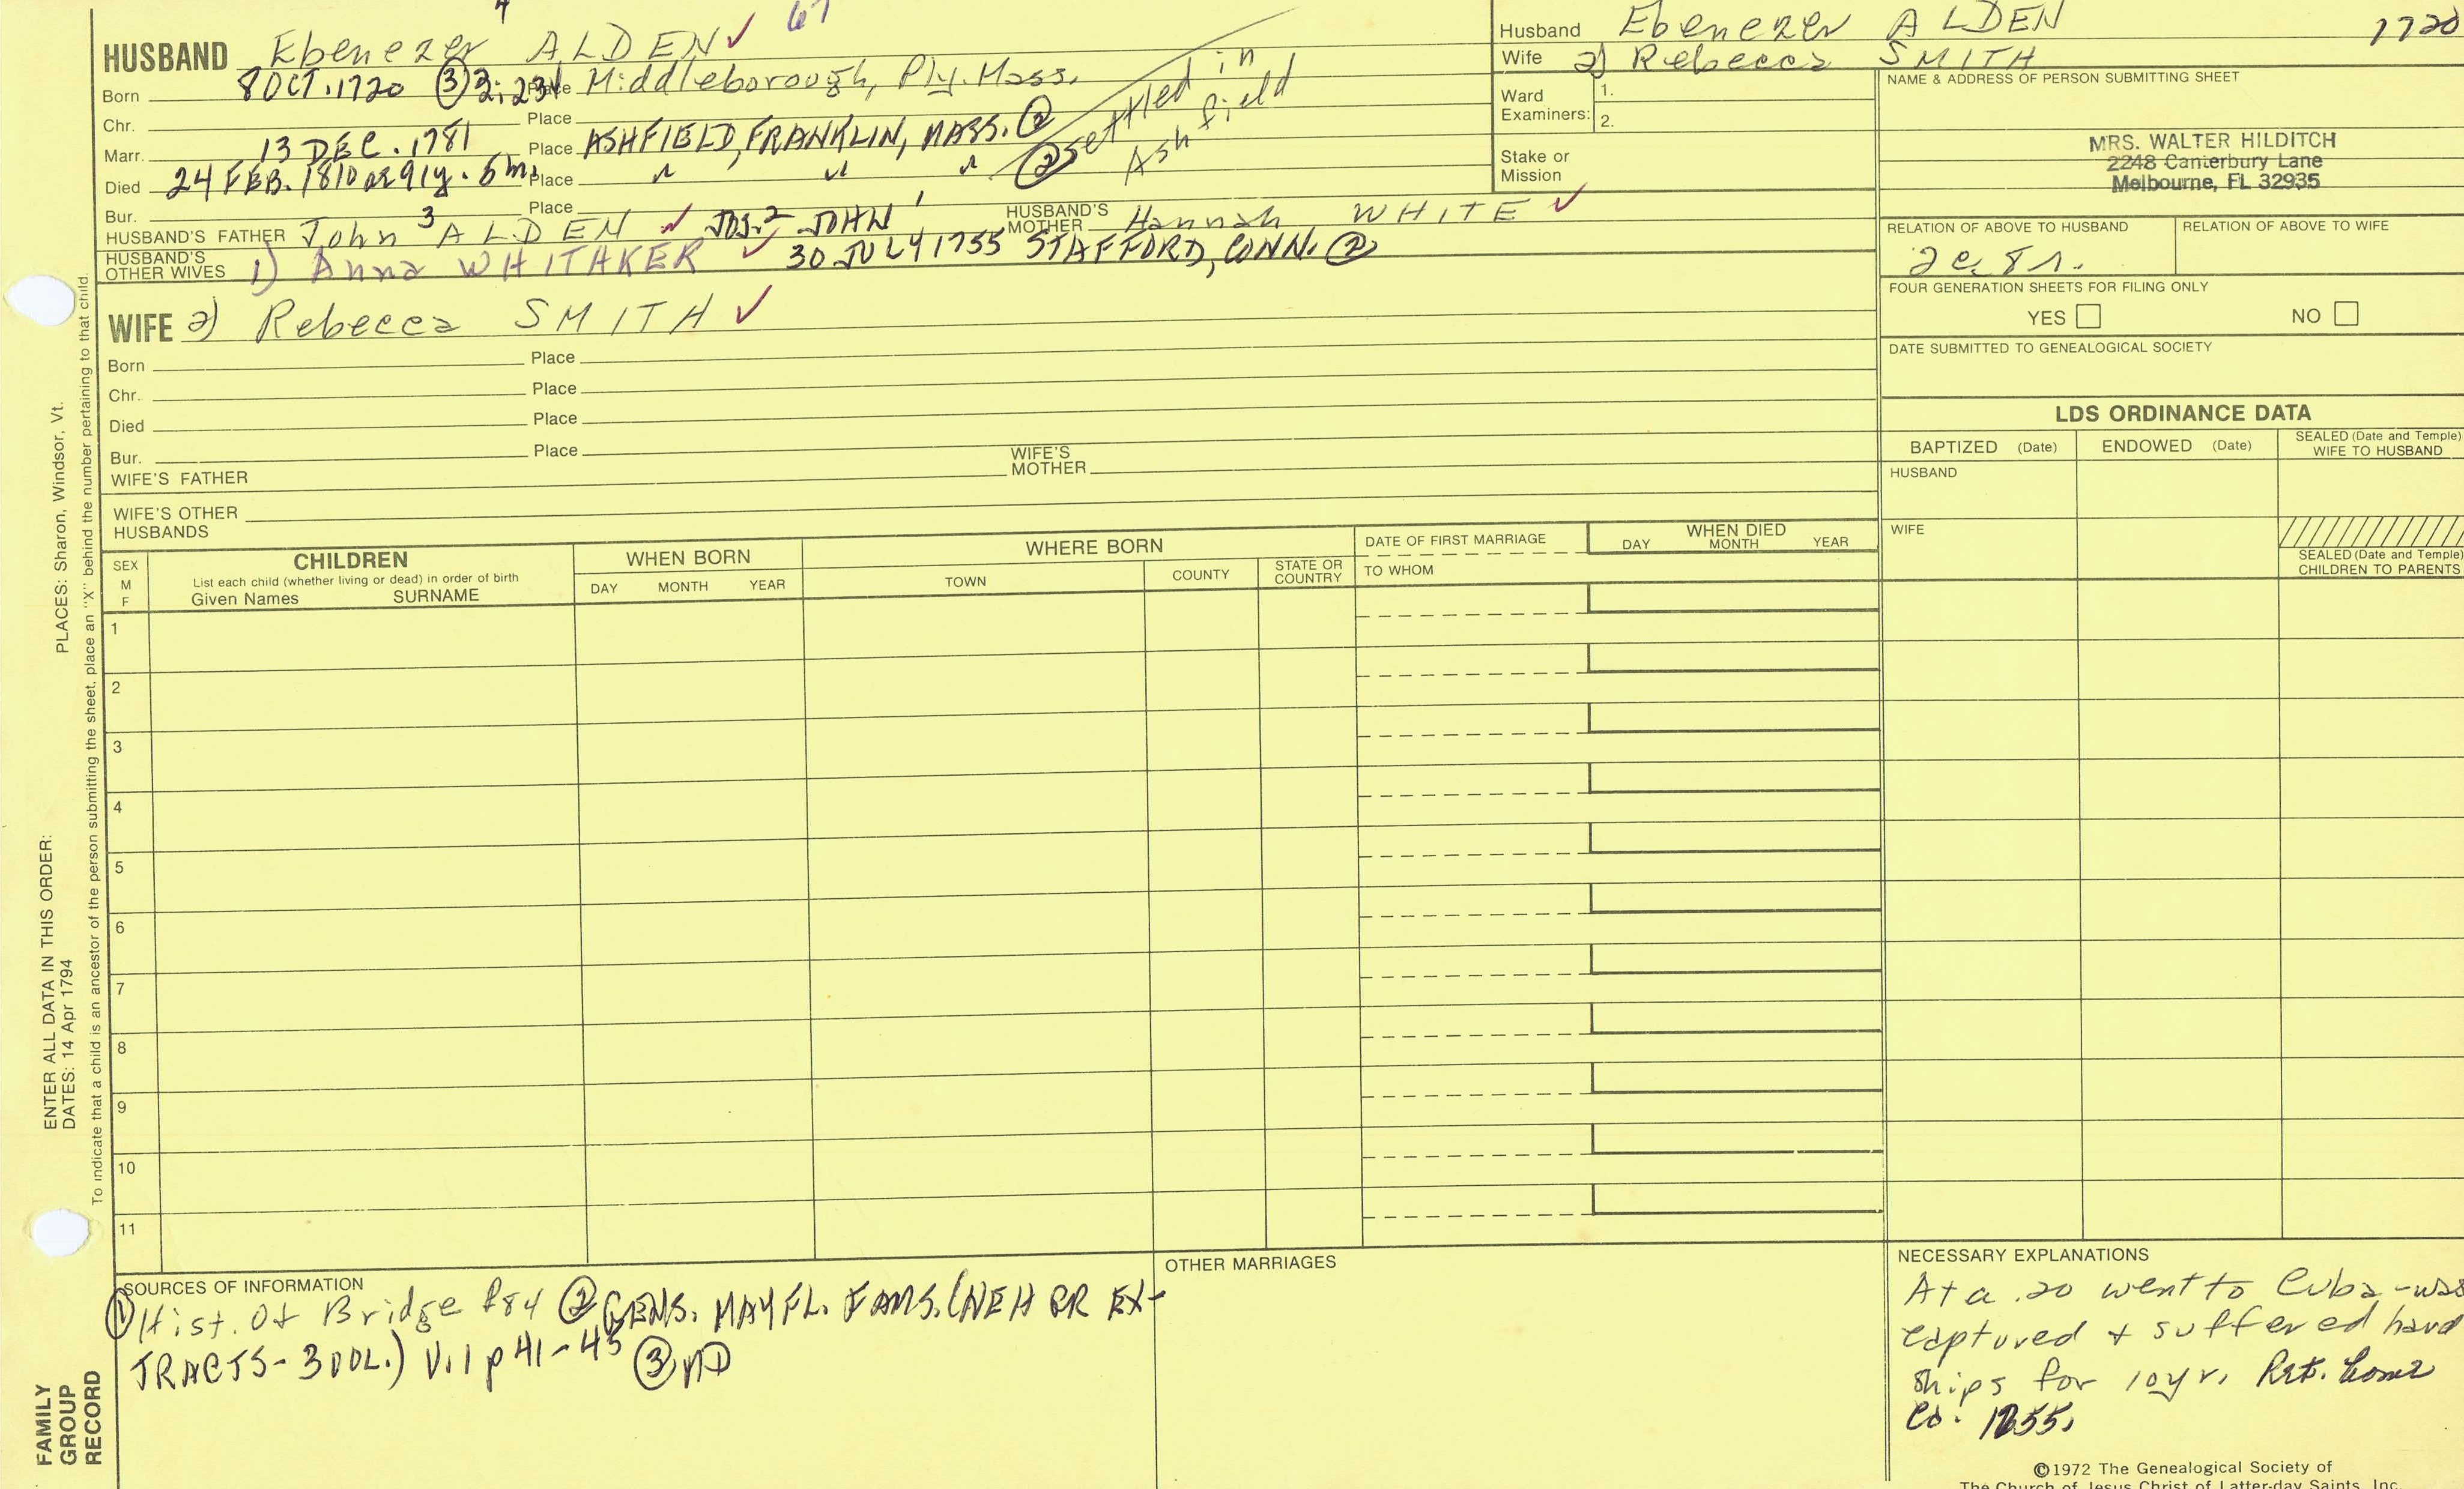 4 67
HUSBAND Ebenezer ALDEN ✓
Born 8 OCT. 1720 ③ 2:23 Place Middleborough, Ply. Mass.
Chr. Place
Marr. 13 DEC. 1781 Place ASHFIELD, FRANKLIN, MASS. ②
Died 24 FEB. 1810 ae 91y. 5m. Place " " "
② settled in
Ashfield
Bur. Place
HUSBAND'S FATHER John 3 ALDEN ✓ JOS.2 JOHN 1 HUSBAND'S MOTHER Hannah WHITE ✓
HUSBAND'S OTHER WIVES 1) Anna WHITAKER ✓ 30 JULY 1755 STAFFORD, CONN. ②
WIFE 2) Rebecca SMITH ✓
Born Place
Chr. Place
Died Place
Bur. Place
WIFE'S FATHER WIFE'S MOTHER
WIFE'S OTHER HUSBANDS
Husband Ebenezer ALDEN 1720
Wife 2) Rebecca SMITH
Ward Examiners: 1.
2.
Stake or Mission
NAME & ADDRESS OF PERSON SUBMITTING SHEET
MRS. WALTER HILDITCH
2248 Canterbury Lane
Melbourne, FL 32935
RELATION OF ABOVE TO HUSBAND RELATION OF ABOVE TO WIFE
2c. 8r.
FOUR GENERATION SHEETS FOR FILING ONLY
YES NO
DATE SUBMITTED TO GENEALOGICAL SOCIETY
LDS ORDINANCE DATA
BAPTIZED (Date) ENDOWED (Date) SEALED (Date and Temple) WIFE TO HUSBAND
HUSBAND
WIFE
SEALED (Date and Temple) CHILDREN TO PARENTS
SEX M F
CHILDREN
List each child (whether living or dead) in order of birth
Given Names SURNAME
WHEN BORN
DAY MONTH YEAR
WHERE BORN
TOWN COUNTY STATE OR COUNTRY
DATE OF FIRST MARRIAGE
TO WHOM
WHEN DIED
DAY MONTH YEAR
1
2
3
4
5
6
7
8
9
10
11
SOURCES OF INFORMATION
① Hist. Of Bridge p84 ② GENS. MAYFL. FAMS. (NEH RR EX-
TRACTS - 3 VOL.) V.1 p 41-45 ③ MD
OTHER MARRIAGES
NECESSARY EXPLANATIONS
At a. 20 went to Cuba - was
captured & suffered hard
ships for 10yr. Ret. home
1755.
©1972 The Genealogical Society of
The Church of Jesus Christ of Latter-day Saints, Inc.
ENTER ALL DATA IN THIS ORDER:
DATES: 14 Apr 1794 PLACES: Sharon, Windsor, Vt.
To indicate that a child is an ancestor of the person submitting the sheet, place an "X" behind the number pertaining to that child.
FAMILY
GROUP
RECORD